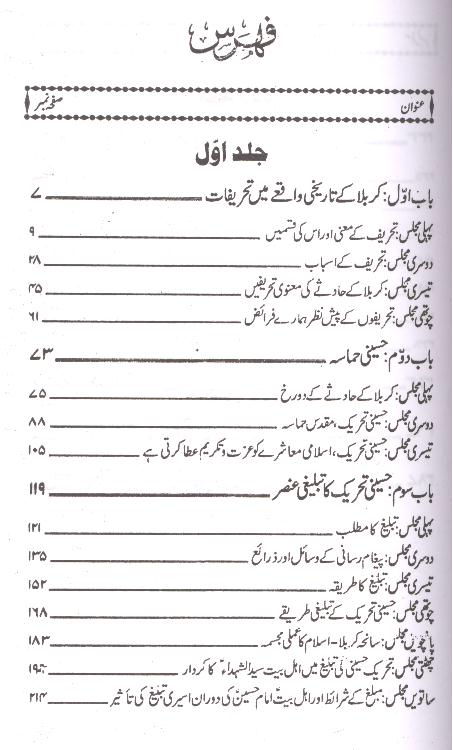 فہرس
عنوان صفحہ نمبر
جلد اوّل
باب اوّل: کربلا کے تاریخی واقعے میں تحریفات ۷
پہلی مجلس: تحریف کے معنی اور اس کی قسمیں ۹
دوسری مجلس: تحریف کے اسباب ۲۸
تیسری مجلس: کربلا کے حادثے کی معنوی تحریفیں ۴۵
چوتھی مجلس: تحریفوں کے پیش نظر ہمارے فرائض ۶۱
باب دوّم: حسینی حماسہ ۷۳
پہلی مجلس: کربلا کے حادثے کے دو رخ ۷۵
دوسری مجلس: حسینی تحریک، مقدس حماسہ ۸۸
تیسری مجلس: حسینی تحریک، اسلامی معاشرے کو عزت و تکریم عطا کرتی ہے ۱۰۵
باب سوم: حسینی تحریک کا تبلیغی عنصر ۱۱۹
پہلی مجلس: تبلیغ کا مطلب ۱۲۱
دوسری مجلس: پیغام رسانی کے وسائل اور ذرائع ۱۳۵
تیسری مجلس: تبلیغ کا طریقہ ۱۵۲
چوتھی مجلس: حسینی تحریک کے تبلیغی طریقے ۱۶۸
پانچویں مجلس: سانحہ کربلا - اسلام کا عملی مجسمہ ۱۸۳
چھٹی مجلس: تحریک حسینی کی تبلیغ میں اہل بیت سید الشہداءؑ کا کردار ۱۹۴
ساتویں مجلس: مبلغ کے شرائط اور اہل بیتؑ امام حسینؑ کی دوران اسیری تبلیغ کی تاثیر ۲۱۴